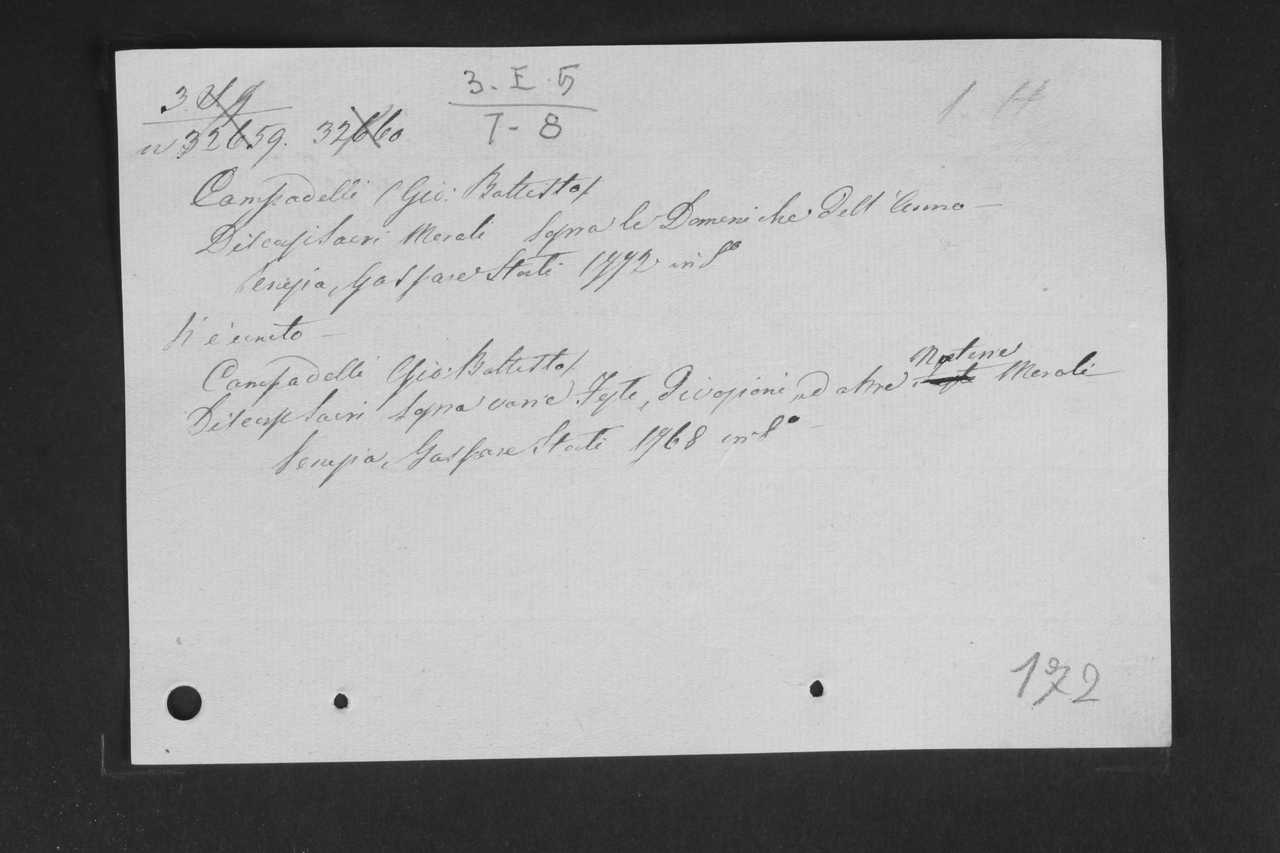 3. E. 5
7-8
n 32659. 32660
Campadelli (Gio: Battista)
Discorsi Sacri Morali sopra le Domeniche dell'Anno —
Venezia, Gaspare Storti 1772 in 8°
Vi è unito —
Campadelli Gio: Battista)
Discorsi Sacri sopra varie Feste, Divozioni, ed altre Materie Morali
Venezia, Gaspare Storti 1768 in 8° —
172